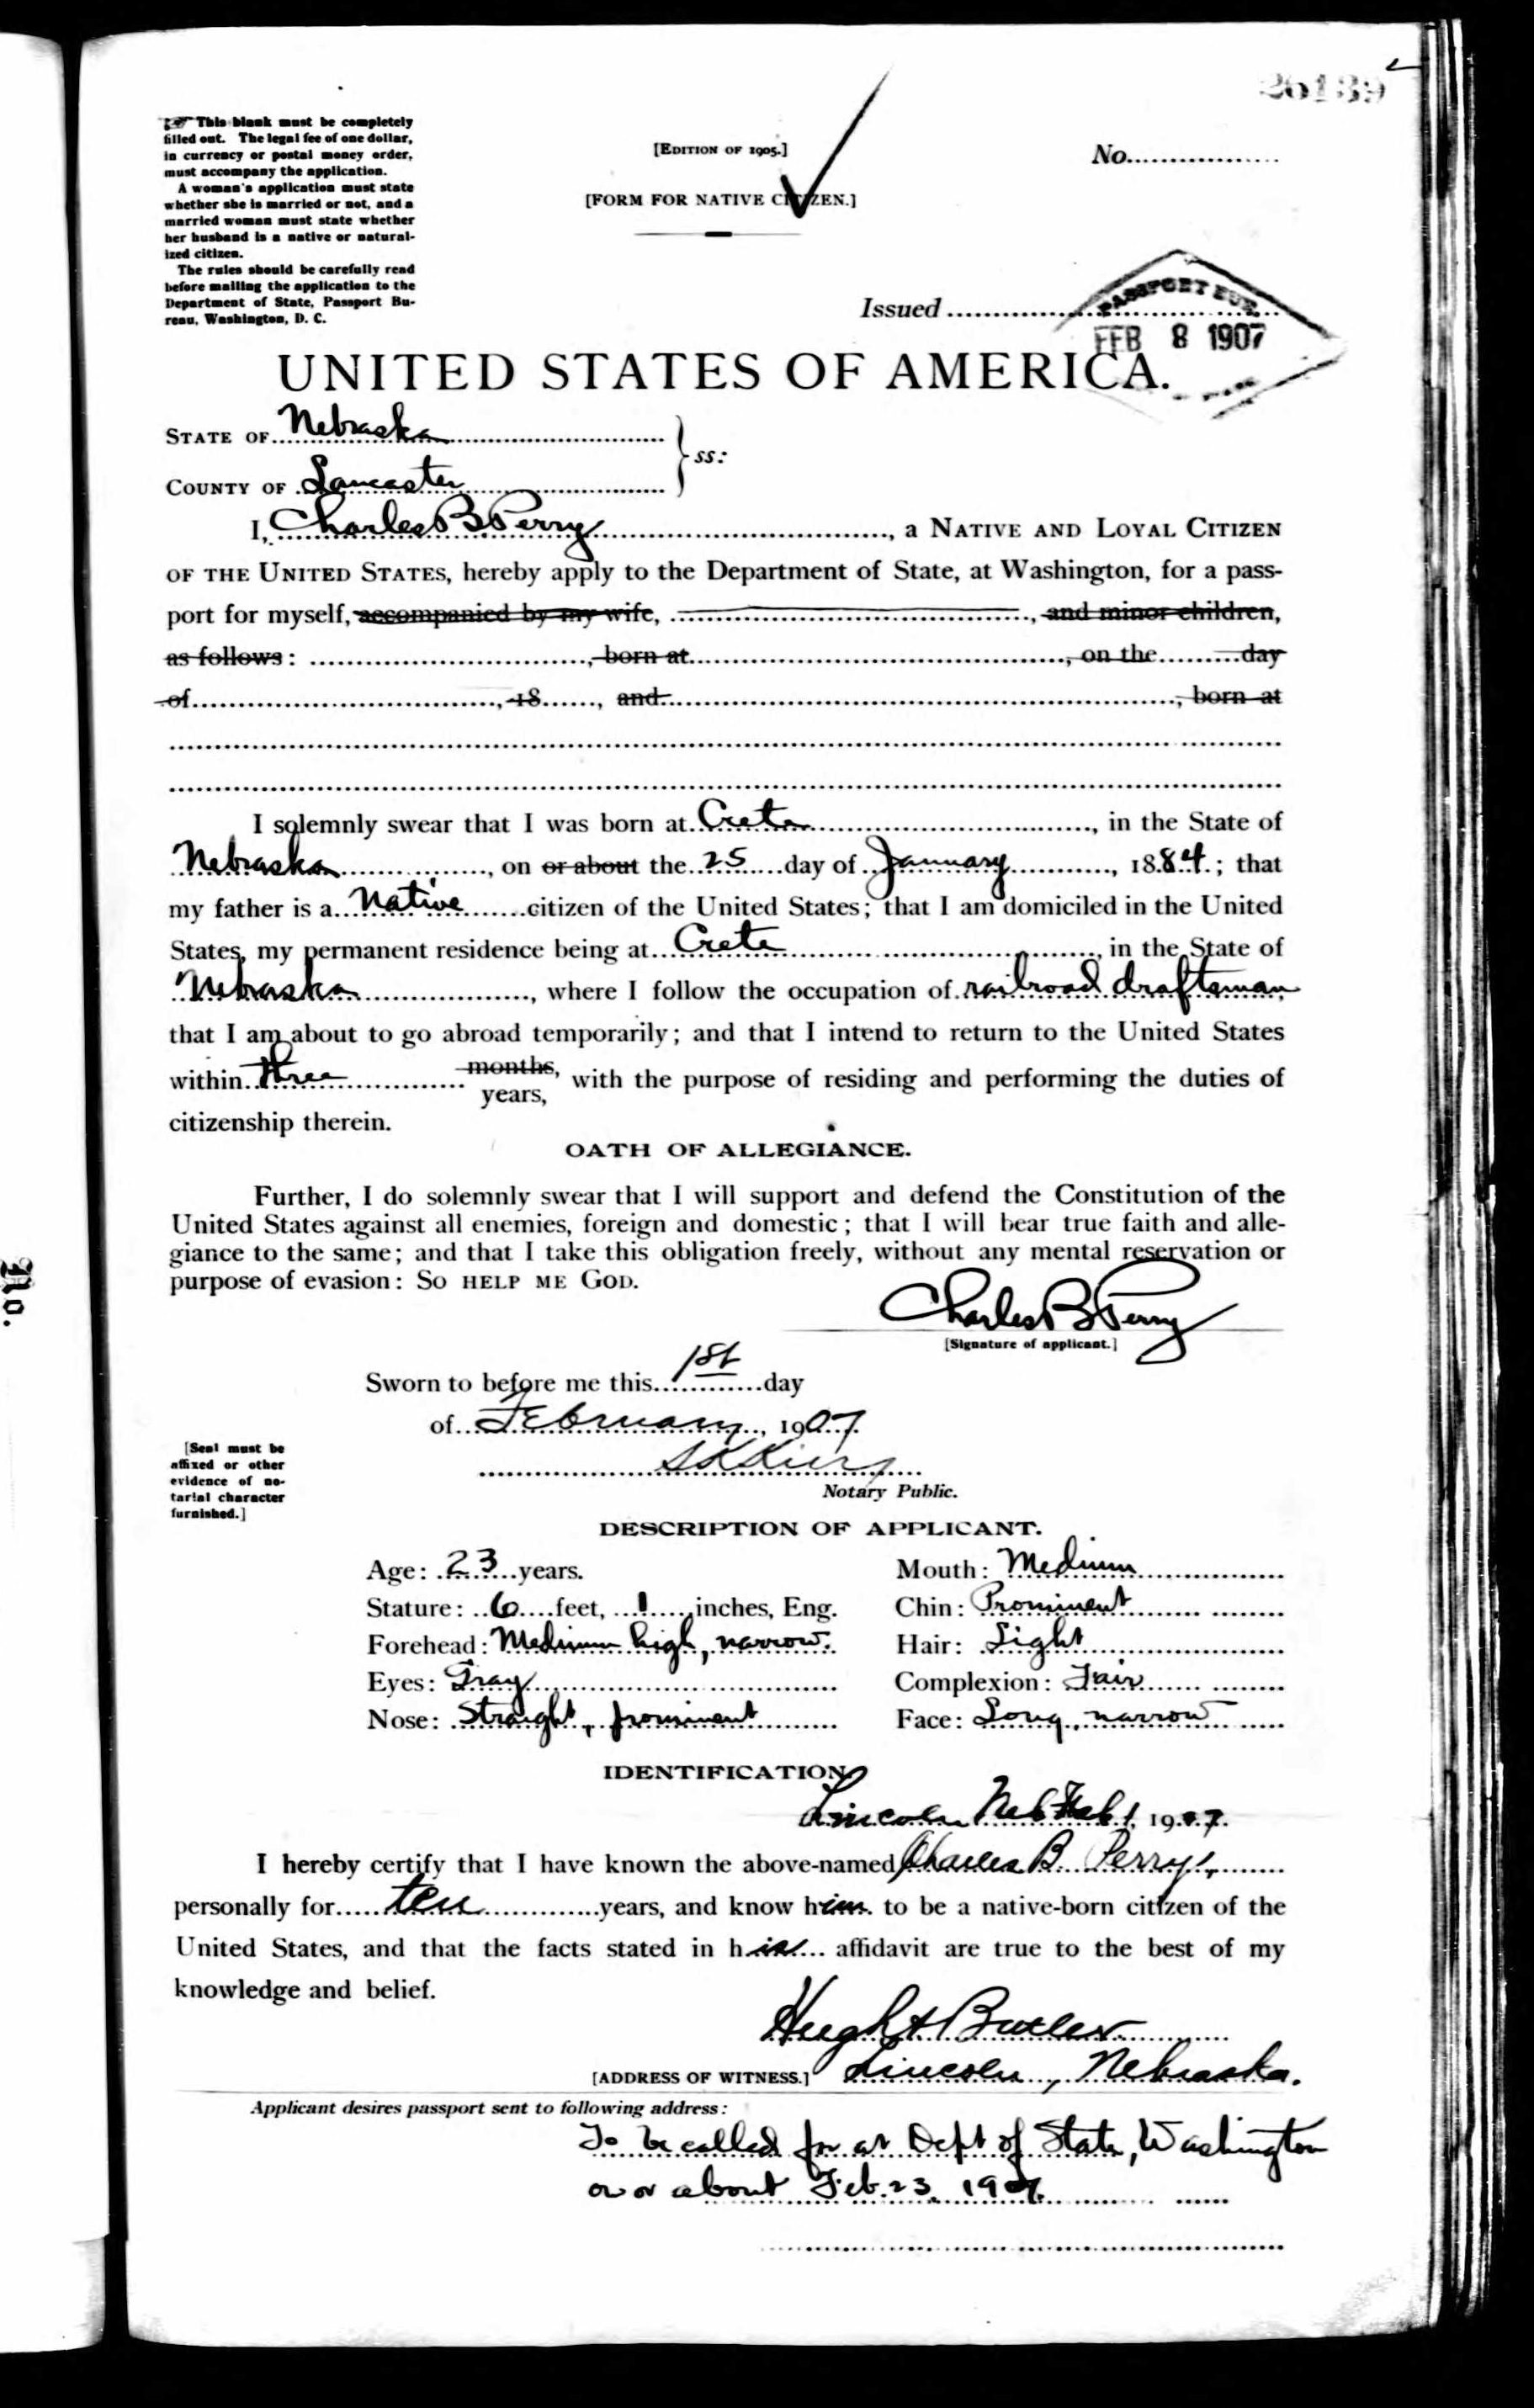 26139
☞ This blank must be completely
filled out. The legal fee of one dollar,
in currency or postal money order,
must accompany the application.
A woman's application must state
whether she is married or not, and a
married woman must state whether
her husband is a native or natural-
ized citizen.
The rules should be carefully read
before mailing the application to the
Department of State, Passport Bu-
reau, Washington, D. C.
[EDITION OF 1905.]
[FORM FOR NATIVE CITIZEN.]
No.
Issued
PASSPORT BUR.
FEB 8 1907
UNITED STATES OF AMERICA.
STATE OF Nebraska
COUNTY OF Lancaster
ss:
I, Charles B Perry, a NATIVE AND LOYAL CITIZEN
OF THE UNITED STATES, hereby apply to the Department of State, at Washington, for a pass-
port for myself, accompanied by my wife, , and minor children,
as follows: , born at , on the day
of , 18 , and , born at
I solemnly swear that I was born at Crete, in the State of
Nebraska, on or about the 25 day of January, 1884; that
my father is a Native citizen of the United States; that I am domiciled in the United
States, my permanent residence being at Crete, in the State of
Nebraska, where I follow the occupation of railroad draftsman,
that I am about to go abroad temporarily; and that I intend to return to the United States
within three months, years, with the purpose of residing and performing the duties of
citizenship therein.
OATH OF ALLEGIANCE.
Further, I do solemnly swear that I will support and defend the Constitution of the
United States against all enemies, foreign and domestic; that I will bear true faith and alle-
giance to the same; and that I take this obligation freely, without any mental reservation or
purpose of evasion: SO HELP ME GOD.
Charles B Perry
[Signature of applicant.]
Sworn to before me this 1st day
of February, 1907
[Seal must be
affixed or other
evidence of no-
tarial character
furnished.]
Notary Public.
DESCRIPTION OF APPLICANT.
Age: 23 years. Mouth: Medium
Stature: 6 feet, 1 inches, Eng. Chin: Prominent
Forehead: Medium high, narrow. Hair: Light
Eyes: Gray Complexion: Fair
Nose: Straight, prominent Face: Long, narrow
IDENTIFICATION
Lincoln Neb Feb 1, 1907.
I hereby certify that I have known the above-named Charles B. Perry,
personally for ten years, and know him to be a native-born citizen of the
United States, and that the facts stated in his affidavit are true to the best of my
knowledge and belief.
Hugh A Butler
[ADDRESS OF WITNESS.] Lincoln, Nebraska.
Applicant desires passport sent to following address:
To be called for at Dept of State, Washington
on or about Feb. 23, 1907.
No.